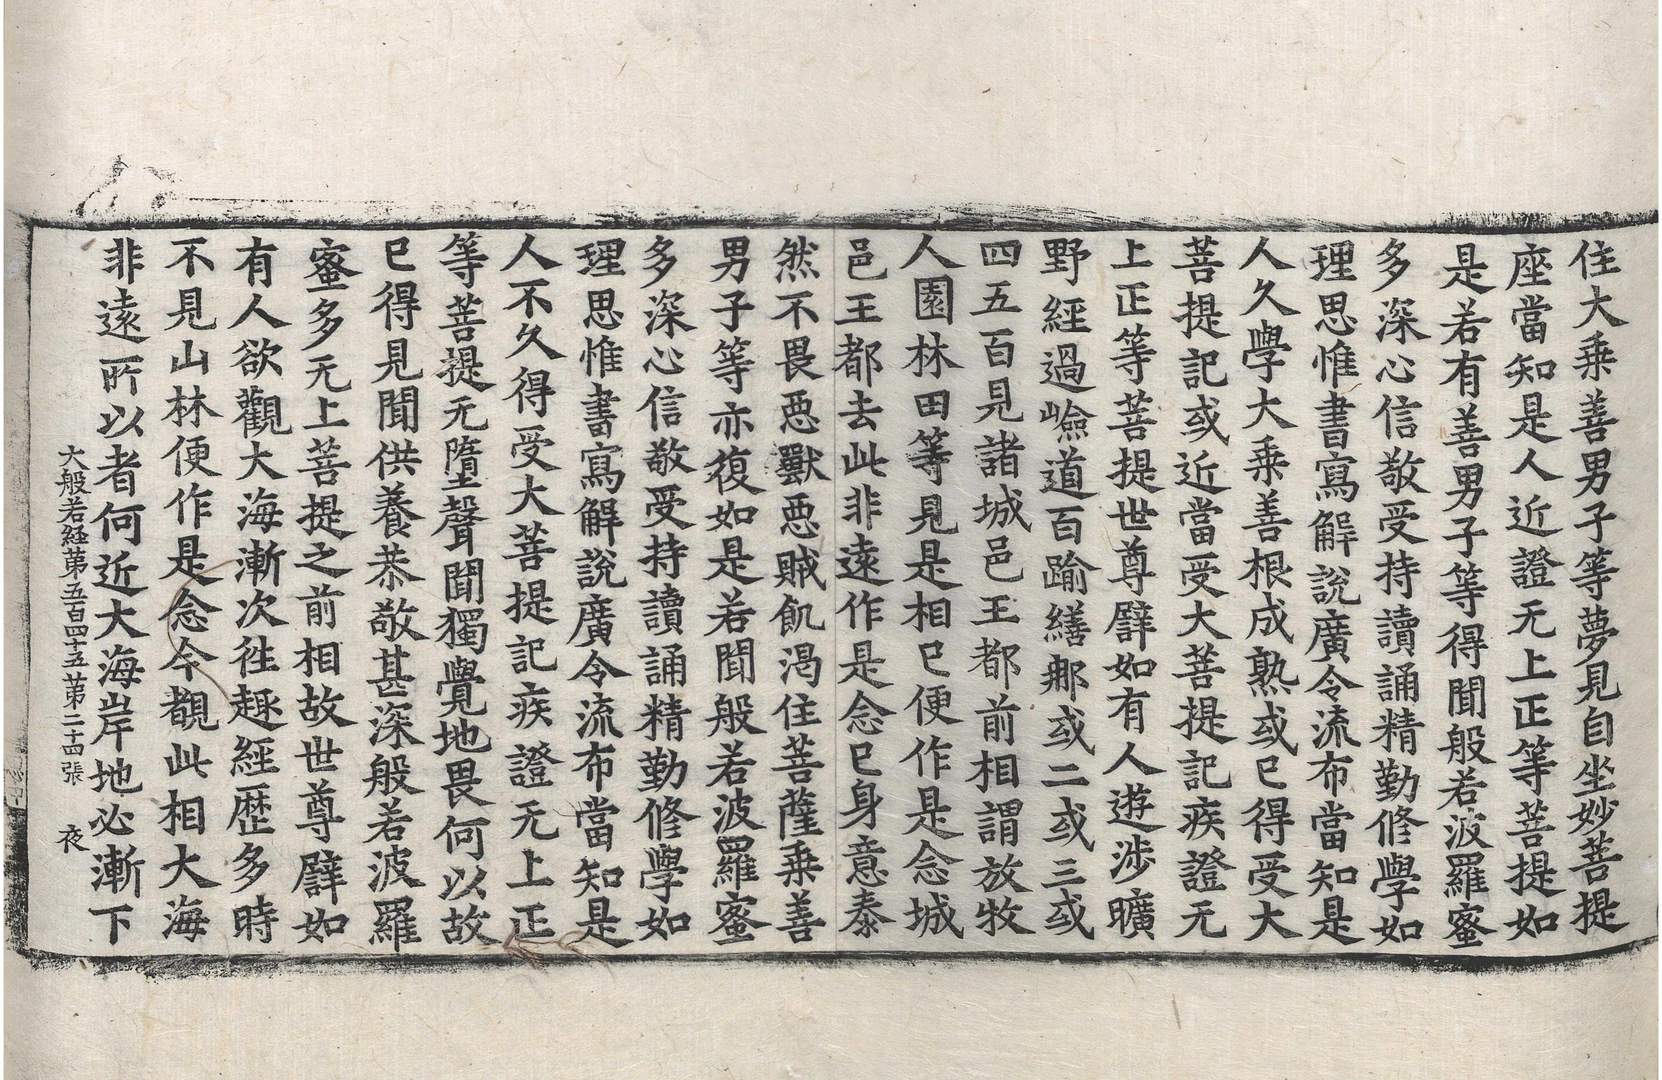 住大乘善男子等夢見自坐妙菩提
座當知是人近證无上正等菩提如
是若有善男子等得聞般若波羅蜜
多深心信敬受持讀誦精勤修學如
理思惟書寫解說廣令流布當知是
人久學大乘善根成熟或已得受大
菩提記或近當受大菩提記疾證无
上正等菩提世尊譬如有人遊涉曠
野經過嶮道百踰繕那或二或三或
四五百見諸城邑王都前相謂放牧
人園林田等見是相已便作是念城
邑王都去此非遠作是念已身意泰
然不畏惡獸惡賊飢渴住菩薩乘善
男子等亦復如是若聞般若波羅蜜
多深心信敬受持讀誦精勤修學如
理思惟書寫解說廣令流布當知是
人不久得受大菩提記疾證无上正
等菩提无墮聲聞獨覺地畏何以故
已得見聞供養恭敬甚深般若波羅
蜜多无上菩提之前相故世尊譬如
有人欲觀大海漸次往趣經歷多時
不見山林便作是念今覩此相大海
非遠所以者何近大海岸地必漸下
大般若経苐五百四十五苐二十四張 夜